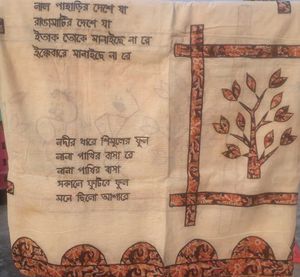 লাল পাহাড়ির দেশে যা
রাঙামাটির দেশে যা
ইতাক তোকে মানাইছে না রে
ইক্কেবারে মানাইছে না রে
নদীর ধারে শিমুলের ফুল
নানা পাখির বাসা রে
নানা পাখির বাসা
সকালে ফুটিবে ফুল
মনে ছিলো আশারে